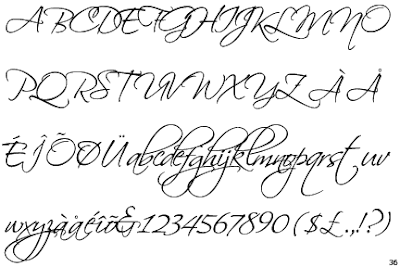 ABCDEFGHIJKLMNO
PQRSTUVWXYZÀÅ
ÉÎÕØÜabcdefghijklmnopqrst uv
wxyzàåéîõ&1234567890($£.,!?)
36